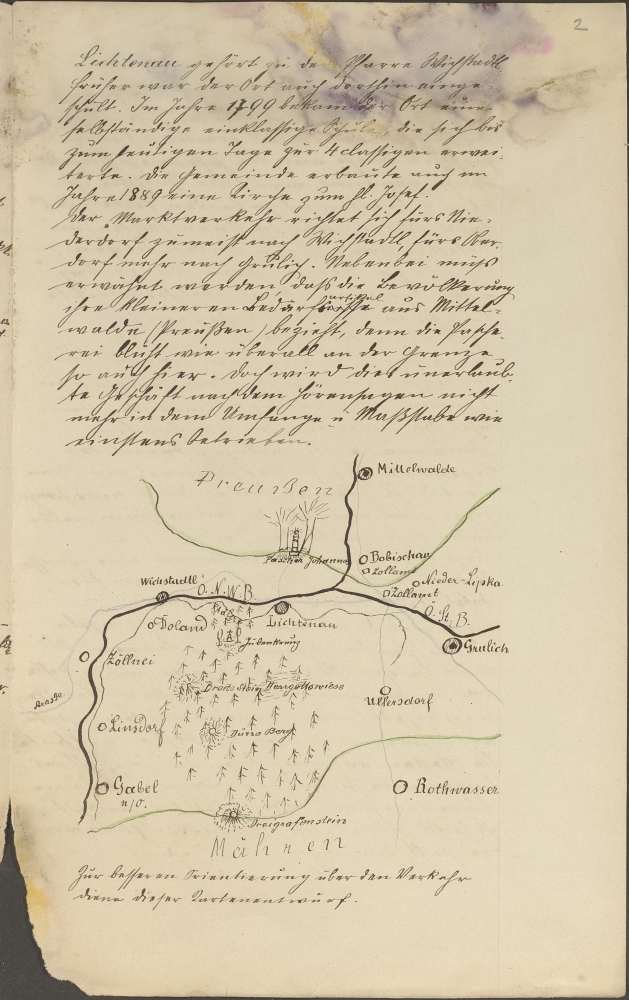 2
Lichtenau gehört zu der Pfarre Wichstadtl,
früher war der Ort auch dorthin einge-
schult. Im Jahre 1799 bekam der Ort eine
selbständige einklassige Schule, die sich bis
zum heutigen Tage zur 4classigen erwei-
terte. Die Gemeinde erbaute auch im
Jahre 1889 eine Kirche zum hl. Josef.
Der Marktverkehr richtet sich fürs Nie-
derdorf zumeist nach Wichstadtl, fürs Ober-
dorf mehr nach Grulich. Nebenbei muß
erwähnt werden, daß die Bevölkerung
ihre kleineren Bedarfsartikel aus Mittel-
walde (Preußen) bezieht, denn die Pasche-
rei blüht wie überall an der Grenze
so auch hier. Doch wird dies unerlaub-
te Geschäft nach dem Hörensagen nicht
mehr in dem Umfange u Maßstabe wie
einstens betrieben.
Preußen
Mittelwalde
Pascher Johanna
Bobischau
Zollamt
Nieder-Lipka
Zollamt
Wichstadtl
O.N.W.B.
O. St. B.
Lichtenau
Doland
Judenkrug
Grulich
Zöllnei
Herrgottswiese
Ullersdorf
Linsdorf
Dürre Berg
Gabel
a/O.
Rothwasser
Dreigrafenstein
Mähren
Zur besseren Orientierung über den Verkehr
diene dieser Kartenentwurf.